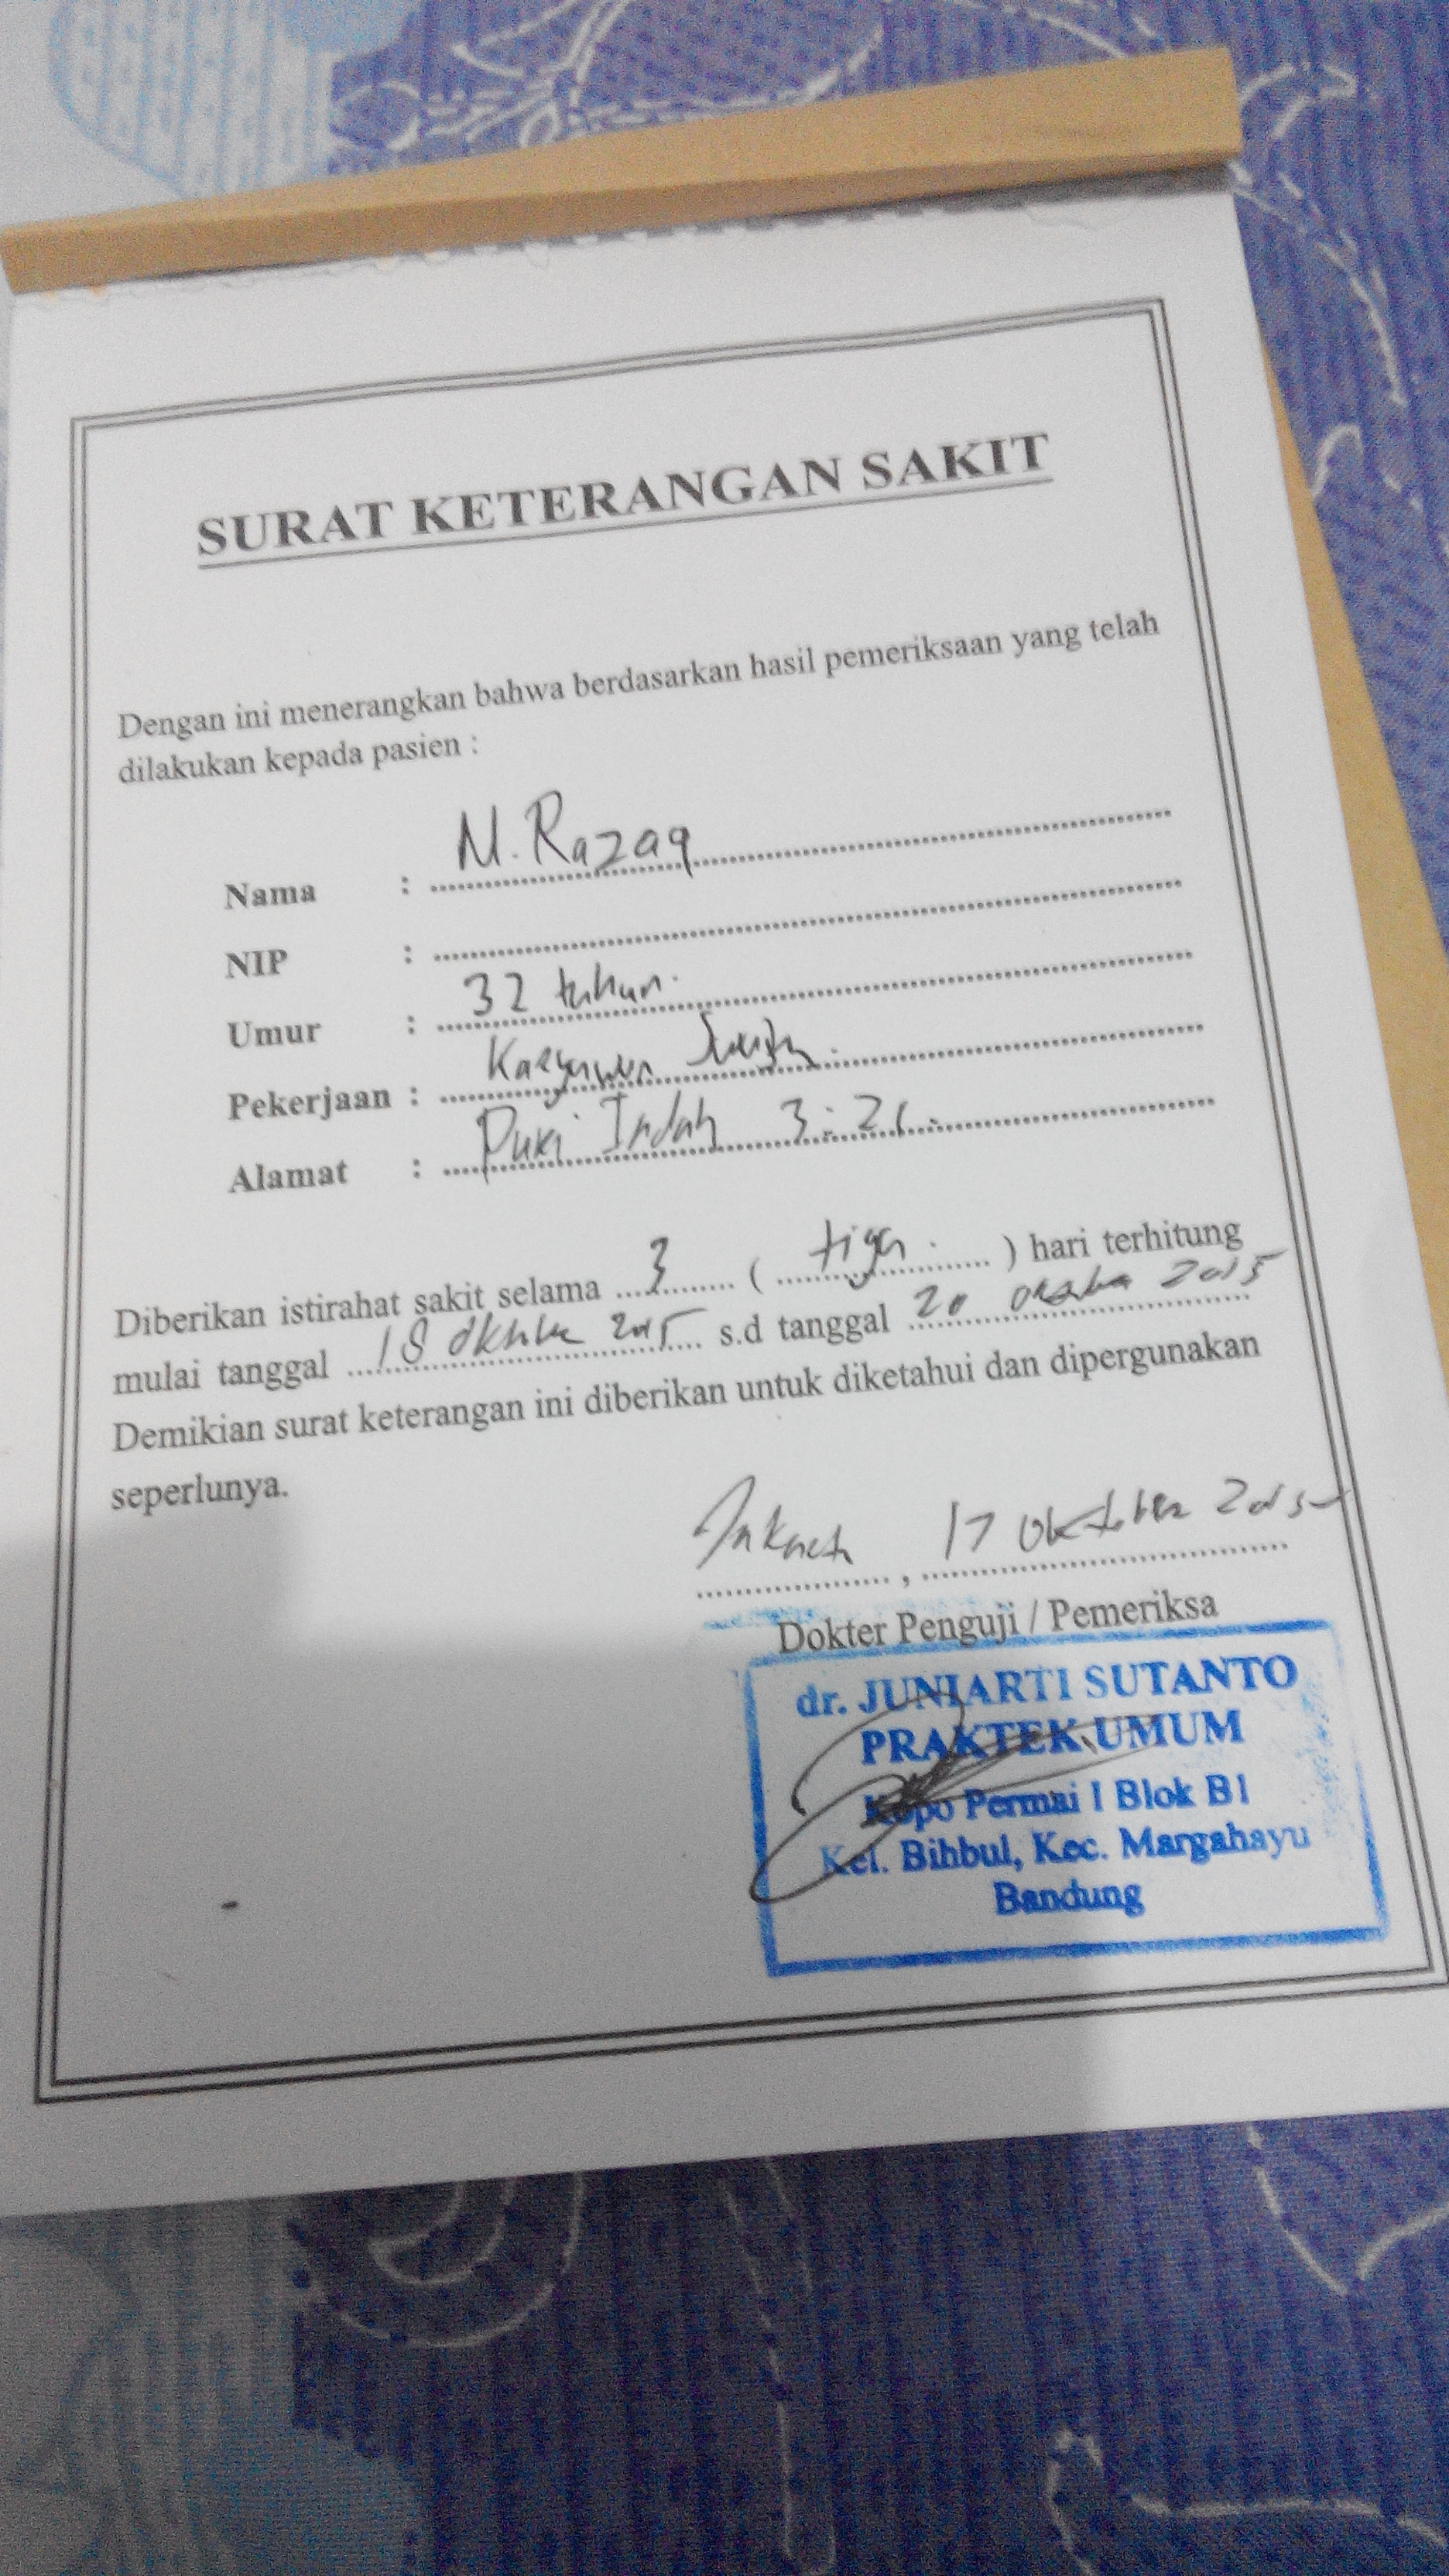 SURAT KETERANGAN SAKIT
Dengan ini menerangkan bahwa berdasarkan hasil pemeriksaan yang telah
dilakukan kepada pasien :
Nama : M. Razaq
NIP :
Umur : 32 tahun.
Pekerjaan : Karyawan
Alamat : Puri Indah 3 : 21.
Diberikan istirahat sakit selama 3 ( tiga ) hari terhitung
mulai tanggal 18 Oktober 2015 s.d tanggal 20 Oktober 2015
Demikian surat keterangan ini diberikan untuk diketahui dan dipergunakan
seperlunya.
Jakarta , 17 Oktober 2015
Dokter Penguji / Pemeriksa
dr. JUNIARTI SUTANTO
PRAKTEK UMUM
Kopo Permai I Blok B1
Kel. Bihbul, Kec. Margahayu
Bandung